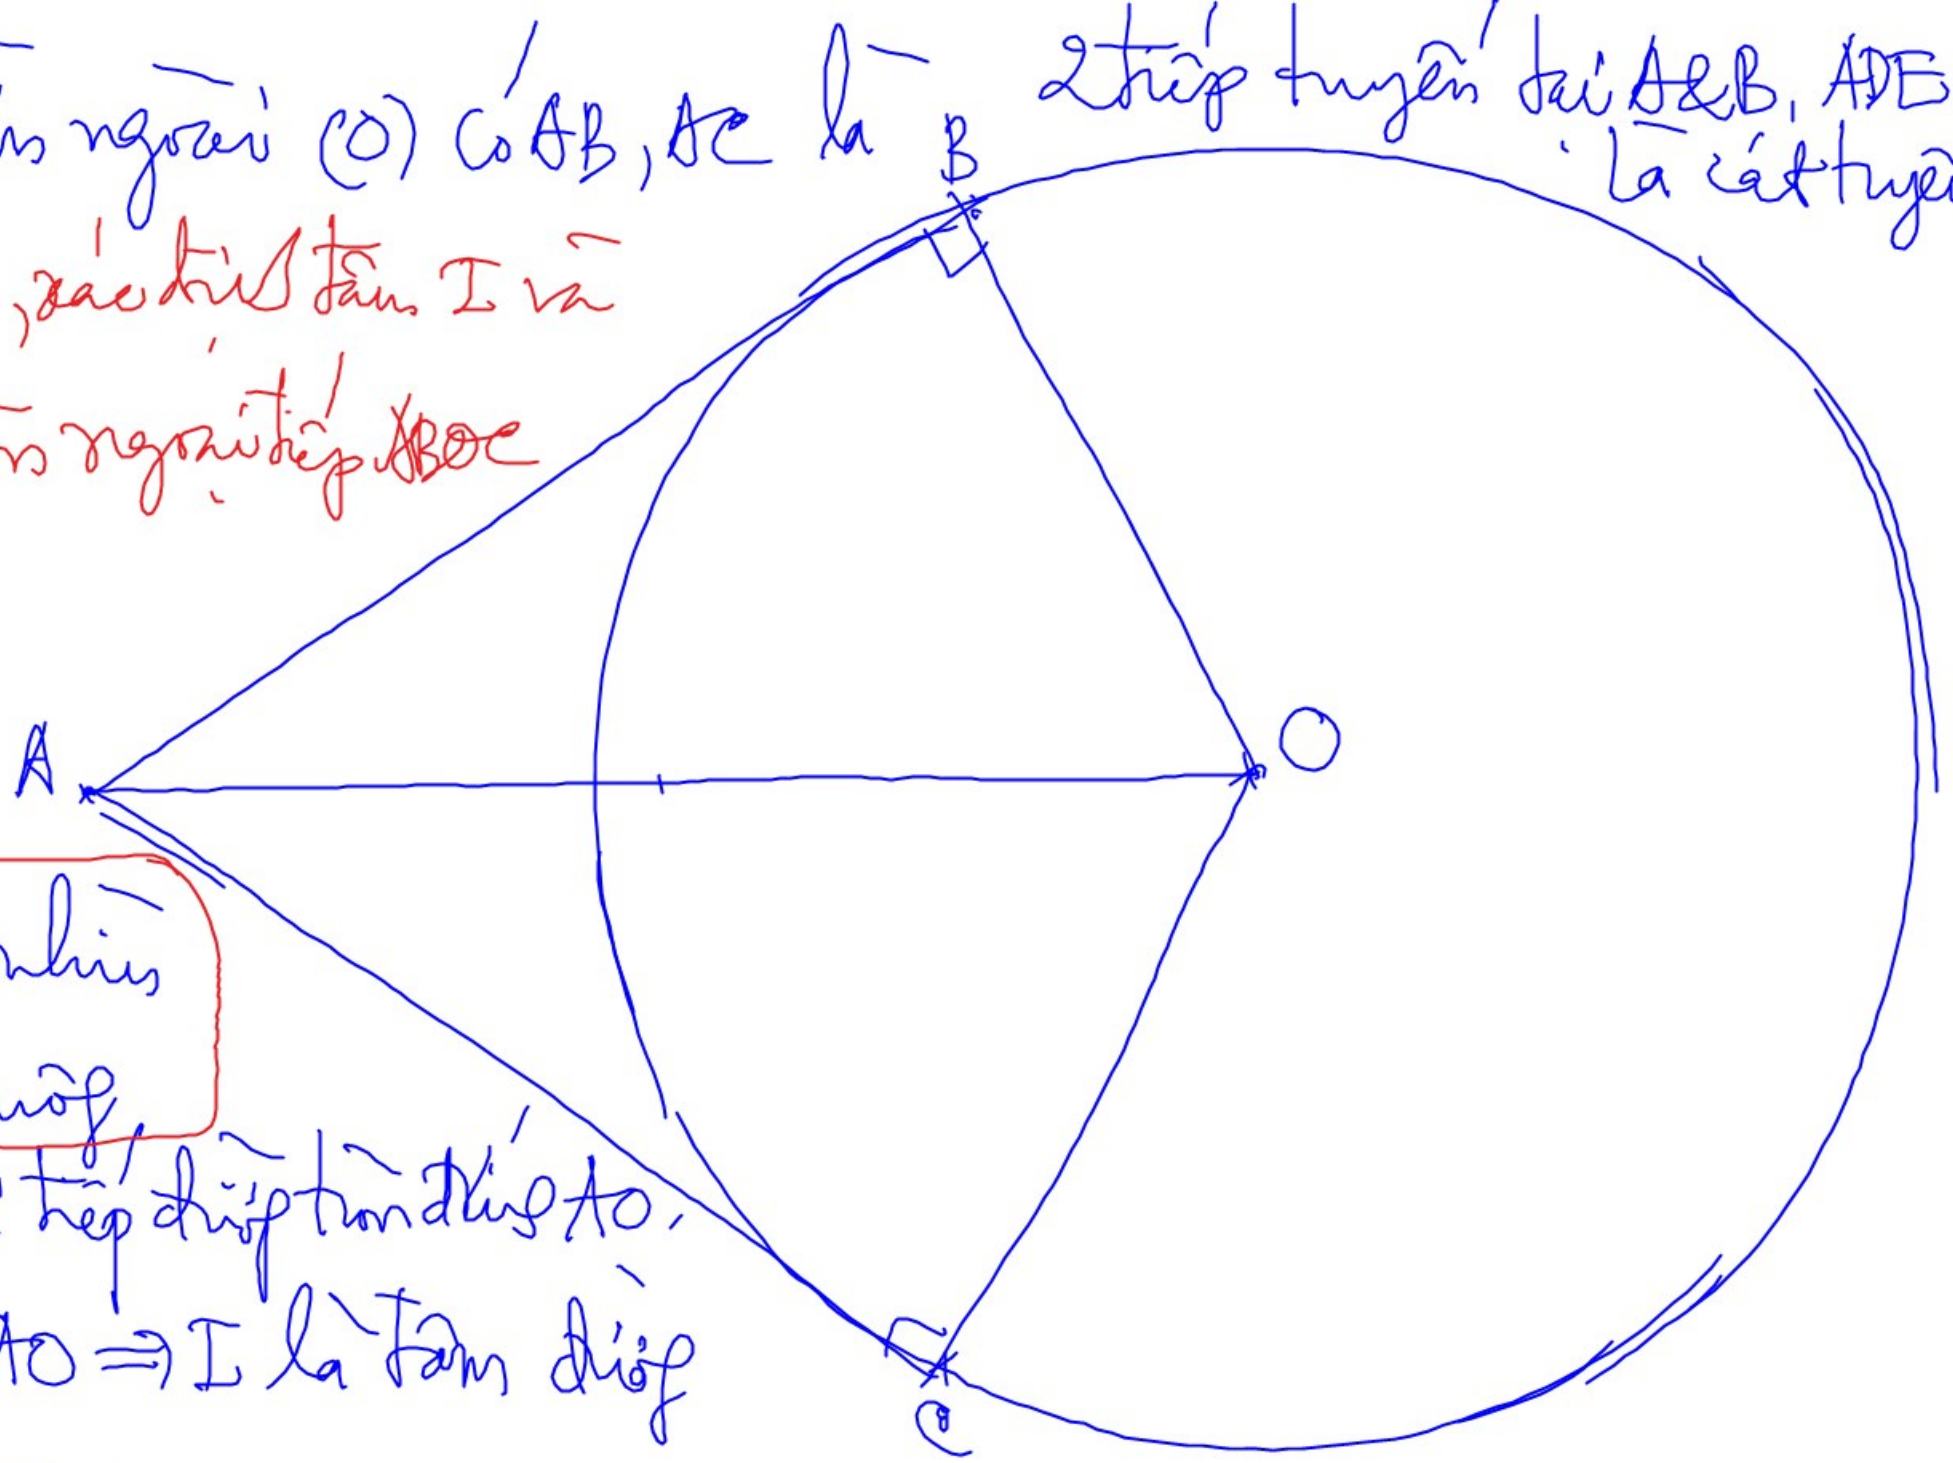 ngoài (O) có AB, AC là 2 tiếp tuyến tại A&B, ADE
là cát tuyến
B
tâm I và
ngoại tiếp ABOC
O
A
nhìn
tiếp đường tròn đkính AO.
AO ⇒ I là tâm đường
C